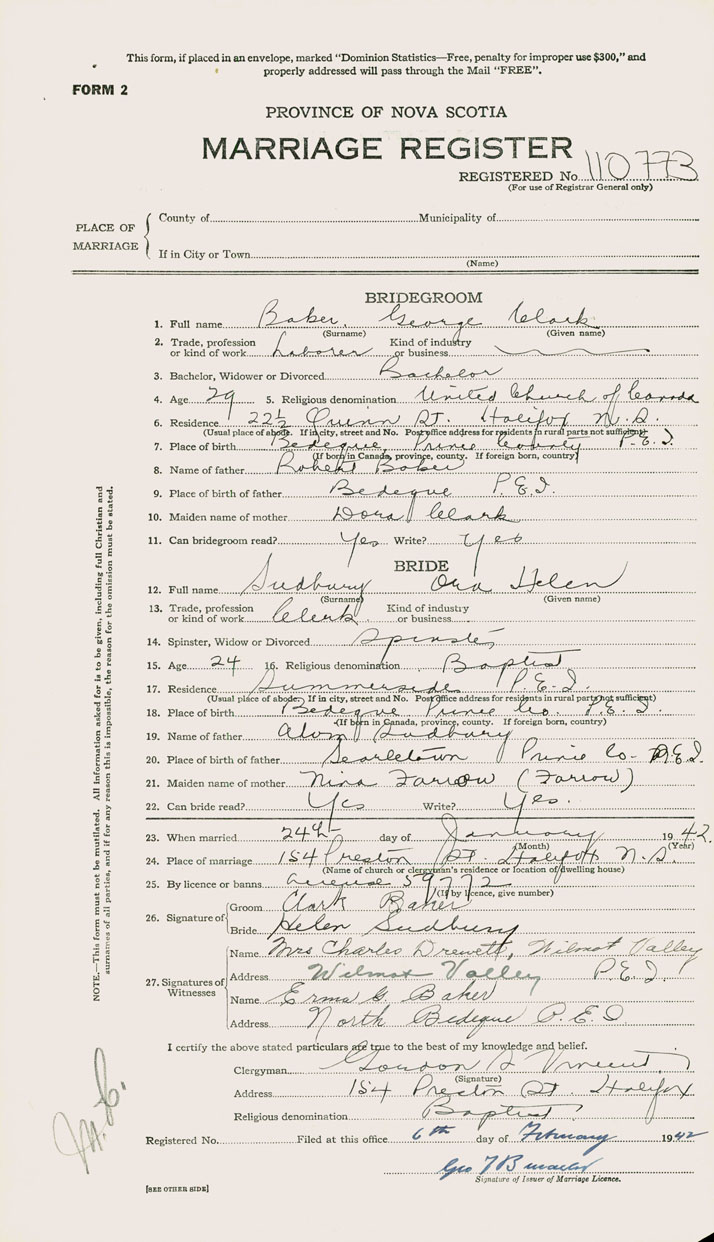 This form, if placed in an envelope, marked "Dominion Statistics—Free, penalty for improper use $300," and
properly addressed will pass through the Mail "FREE".
FORM 2
PROVINCE OF NOVA SCOTIA
MARRIAGE REGISTER
REGISTERED No. 110773
(For use of Registrar General only)
PLACE OF MARRIAGE
County of Municipality of
If in City or Town
(Name)
BRIDEGROOM
1. Full name Baker, George Clark
(Surname) (Given name)
2. Trade, profession or kind of work Laborer Kind of industry or business
3. Bachelor, Widower or Divorced Bachelor
4. Age 29 5. Religious denomination United Church of Canada
6. Residence 22½ Quinn St. Halifax N.S.
(Usual place of abode. If in city, street and No. Post office address for residents in rural parts not sufficient)
7. Place of birth Bedeque, Prince County P.E.I.
(If born in Canada, province, county. If foreign born, country)
8. Name of father Robert Baker
9. Place of birth of father Bedeque P.E.I.
10. Maiden name of mother Dora Clark
11. Can bridegroom read? Yes Write? Yes
BRIDE
12. Full name Sudbury Ora Helen
(Surname) (Given name)
13. Trade, profession or kind of work Clerk Kind of industry or business
14. Spinster, Widow or Divorced Spinster
15. Age 24 16. Religious denomination Baptist
17. Residence Summerside P.E.I.
(Usual place of abode. If in city, street and No. Post office address for residents in rural parts not sufficient)
18. Place of birth Bedeque Prince Co. P.E.I.
(If born in Canada, province, county. If foreign born, country)
19. Name of father Sudbury
20. Place of birth of father Searletown Prince Co. P.E.I.
21. Maiden name of mother Nina Farrow (Farrow)
22. Can bride read? Yes Write? Yes.
23. When married 24th day of January 1942.
(Month) (Year)
24. Place of marriage 154 Preston St. Halifax N.S.
(Name of church or clergyman's residence or location of dwelling house)
25. By licence or banns 59772
(If by licence, give number)
26. Signature of
Groom Clark Baker
Bride Helen Sudbury
27. Signatures of Witnesses
Name Mrs Charles Drewett, Wilmot Valley
Address Wilmot Valley P.E.I.
Name Erma G. Baker
Address North Bedeque P.E.I.
I certify the above stated particulars are true to the best of my knowledge and belief.
Clergyman Gordon Vincent
(Signature)
Address 154 Preston St. Halifax
Religious denomination Baptist
Registered No. Filed at this office 6th day of February 1942
Geo
Signature of Issuer of Marriage Licence.
[SEE OTHER SIDE]
NOTE.—This form must not be mutilated. All information asked for is to be given, including full Christian and
surnames of all parties, and if for any reason this is impossible, the reason for the omission must be stated.